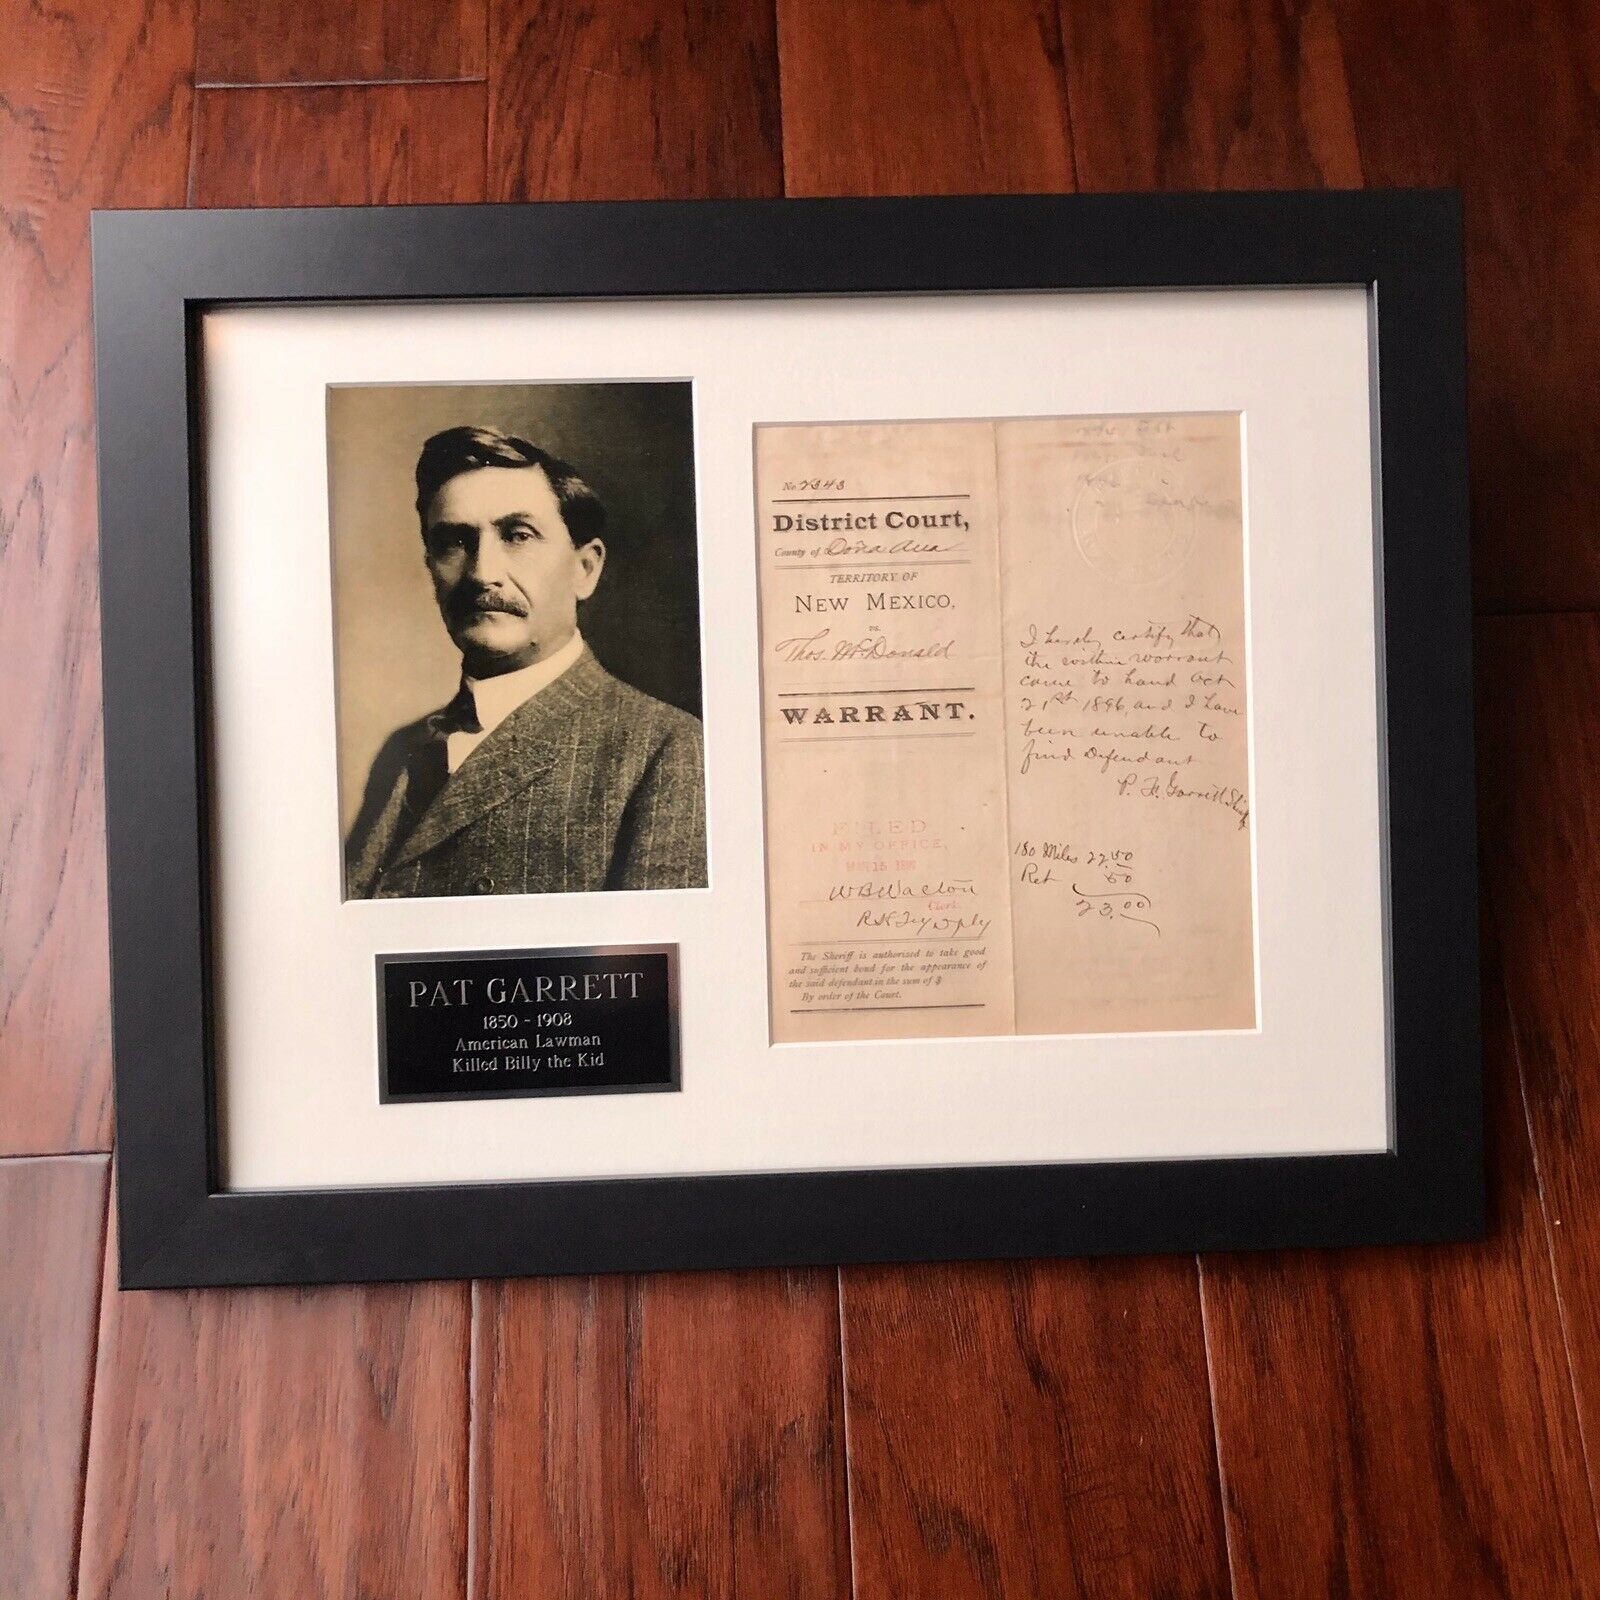 PAT GARRETT
1850 - 1908
American Lawman
Killed Billy the Kid
No. 2343
District Court,
County of Doña Ana
TERRITORY OF
NEW MEXICO,
vs.
Thos. McDonald
WARRANT.
FILED
IN MY OFFICE,
15
W B Walton
Clerk
The Sheriff is authorized to take good
and sufficient bond for the appearance of
the said defendant in the sum of $
By order of the Court.
I hereby certify that
the within warrant
came to hand Oct
21st 1896, and I have
been unable to
find Defendant
P. F. Garrett Sheriff
180 Miles 22.50
Ret 50
23.00